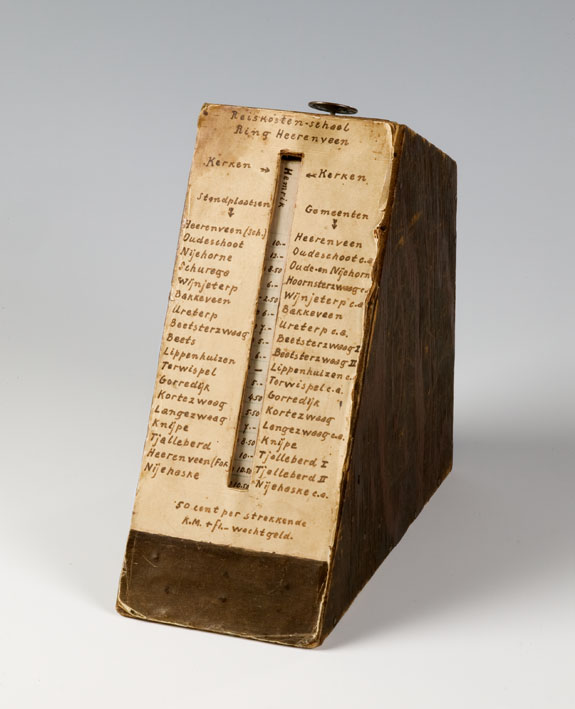 Reiskosten-schaal
Ring Heerenveen
Kerken
Kerken
Hemrik
Standplaatsen
Heerenveen (Sch.)
Oudeschoot
Nijehorne
Schurega
Wijnjeterp
Bakkeveen
Ureterp
Beetsterzwaag
Beets
Lippenhuizen
Terwispel
Gorredijk
Kortezwaag
Langezwaag
Knijpe
Tjalleberd
Heerenveen (Fok)
Nijehaske
10.-
13.-
8.50
6.-
2.50
6.-
7.-
5.-
6.-
—
5.-
4.50
5.50
7.-
8.50
10.-
10.50
10.50
Gemeenten
Heerenveen
Oudeschoot c.a
Oude-en Nijehorn
Hoornsterzwaag c
Wijnjeterp c.a
Bakkeveen
Ureterp c.a.
Beetsterzwaag I
Beetsterzwaag II
Lippenhuizen c.
Terwispel c.a.
Gorredijk
Kortezwaag
Langezwaag c.a.
Knijpe
Tjalleberd I
Tjalleberd II
Nijehaske c.a.
50 cent per strekkende
K.M. + fl.- wachtgeld.